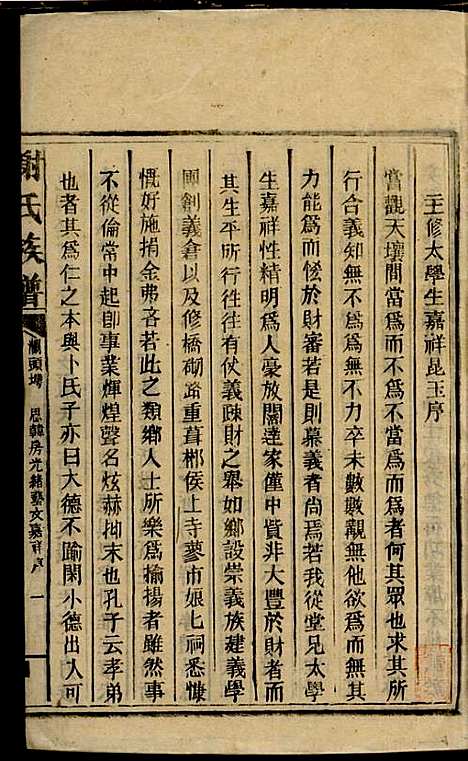 主修太學生嘉祥昆玉序
嘗觀天壤間當為而不為不當為者何其眾也求其所
行合義知無不為為無不力卒未數數覯無他欲為而無其
力能為而恡於財審若是則慕義者尚焉若我從堂兄太學
生嘉祥性精明為人豪放闊達家僅中貲非大豐於財者而
其生平所行往往有仗義疎財之舉如鄉設崇義族建義學
團創義倉以及修橋砌路重葺郴侯上寺蓼市娘七祠悉慷
慨好施捐金弗吝若此之類鄉人士所樂為揄揚者雖然事
不從倫常中起卽事業輝煌聲名炫赫抑末也孔子云孝弟
也者其為仁之本與卜氏子亦曰大德不踰閑小德出入可
謝氏族譜
恩韓房光緒藝文嘉祥序 一